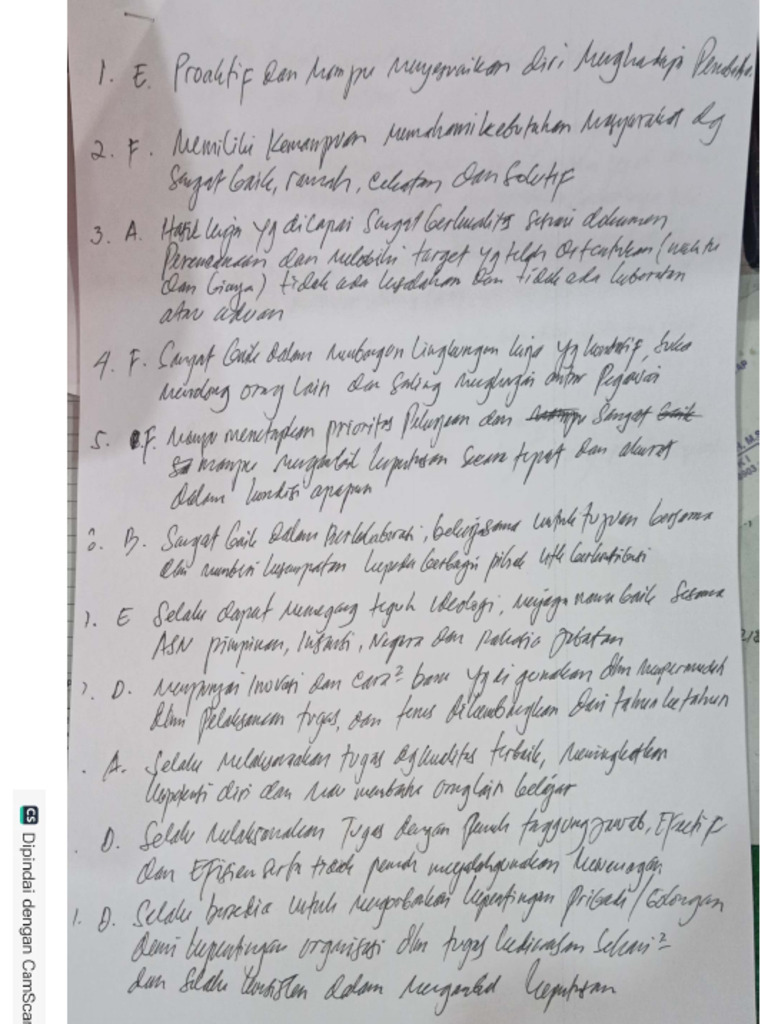 1. E. Proaktif dan Mampu menyesuaikan diri menghadapi Perubahan
2. F. Memiliki Kemampuan memahami kebutuhan Masyarakat dg
Sangat baik, ramah, cekatan dan Solutif
3. A. Hasil kerja yg dicapai Sangat berkualitas sesuai dokumen
Perencanaan dan melebihi target yg telah ditentukan (waktu
dan biaya) tidak ada kesalahan dan tidak ada keberatan
atau aduan
4. F. Sangat baik dalam membangun Lingkungan kerja yg kondusif, Suka
menolong orang lain dan Saling menghargai antar Pegawai
5. F. Mampu menetapkan prioritas Pekerjaan dan Sangat
mampu mengambil keputusan secara tepat dan akurat
dalam kondisi apapun
B. Sangat baik dalam Berkolaborasi, bekerjasama untuk tujuan bersama
dan memberi kesempatan kepada berbagai pihak utk berkontribusi
E Selalu dapat memegang teguh ideologi, menjaga nama baik Sesama
ASN pimpinan, Instansi, Negara dan Rahasia jabatan
D. Mempunyai Inovasi dan cara² baru yg di gunakan dlm mempermudah
dlm pelaksanaan tugas, dan terus dikembangkan dari tahun ke tahun
A. Selalu melaksanakan tugas dg kualitas terbaik, meningkatkan
kompetensi diri dan mau membantu orang lain belajar
D. Selalu melaksanakan Tugas dengan penuh tanggung jawab, Efektif
dan Efisien serta tidak pernah menyalahgunakan kewenangan
D. Selalu bersedia untuk mengorbankan kepentingan pribadi / Golongan
demi kepentingan organisasi dlm tugas kedinasan Sehari²
dan selalu konsisten dalam mengambil keputusan
CS Dipindai dengan CamScan